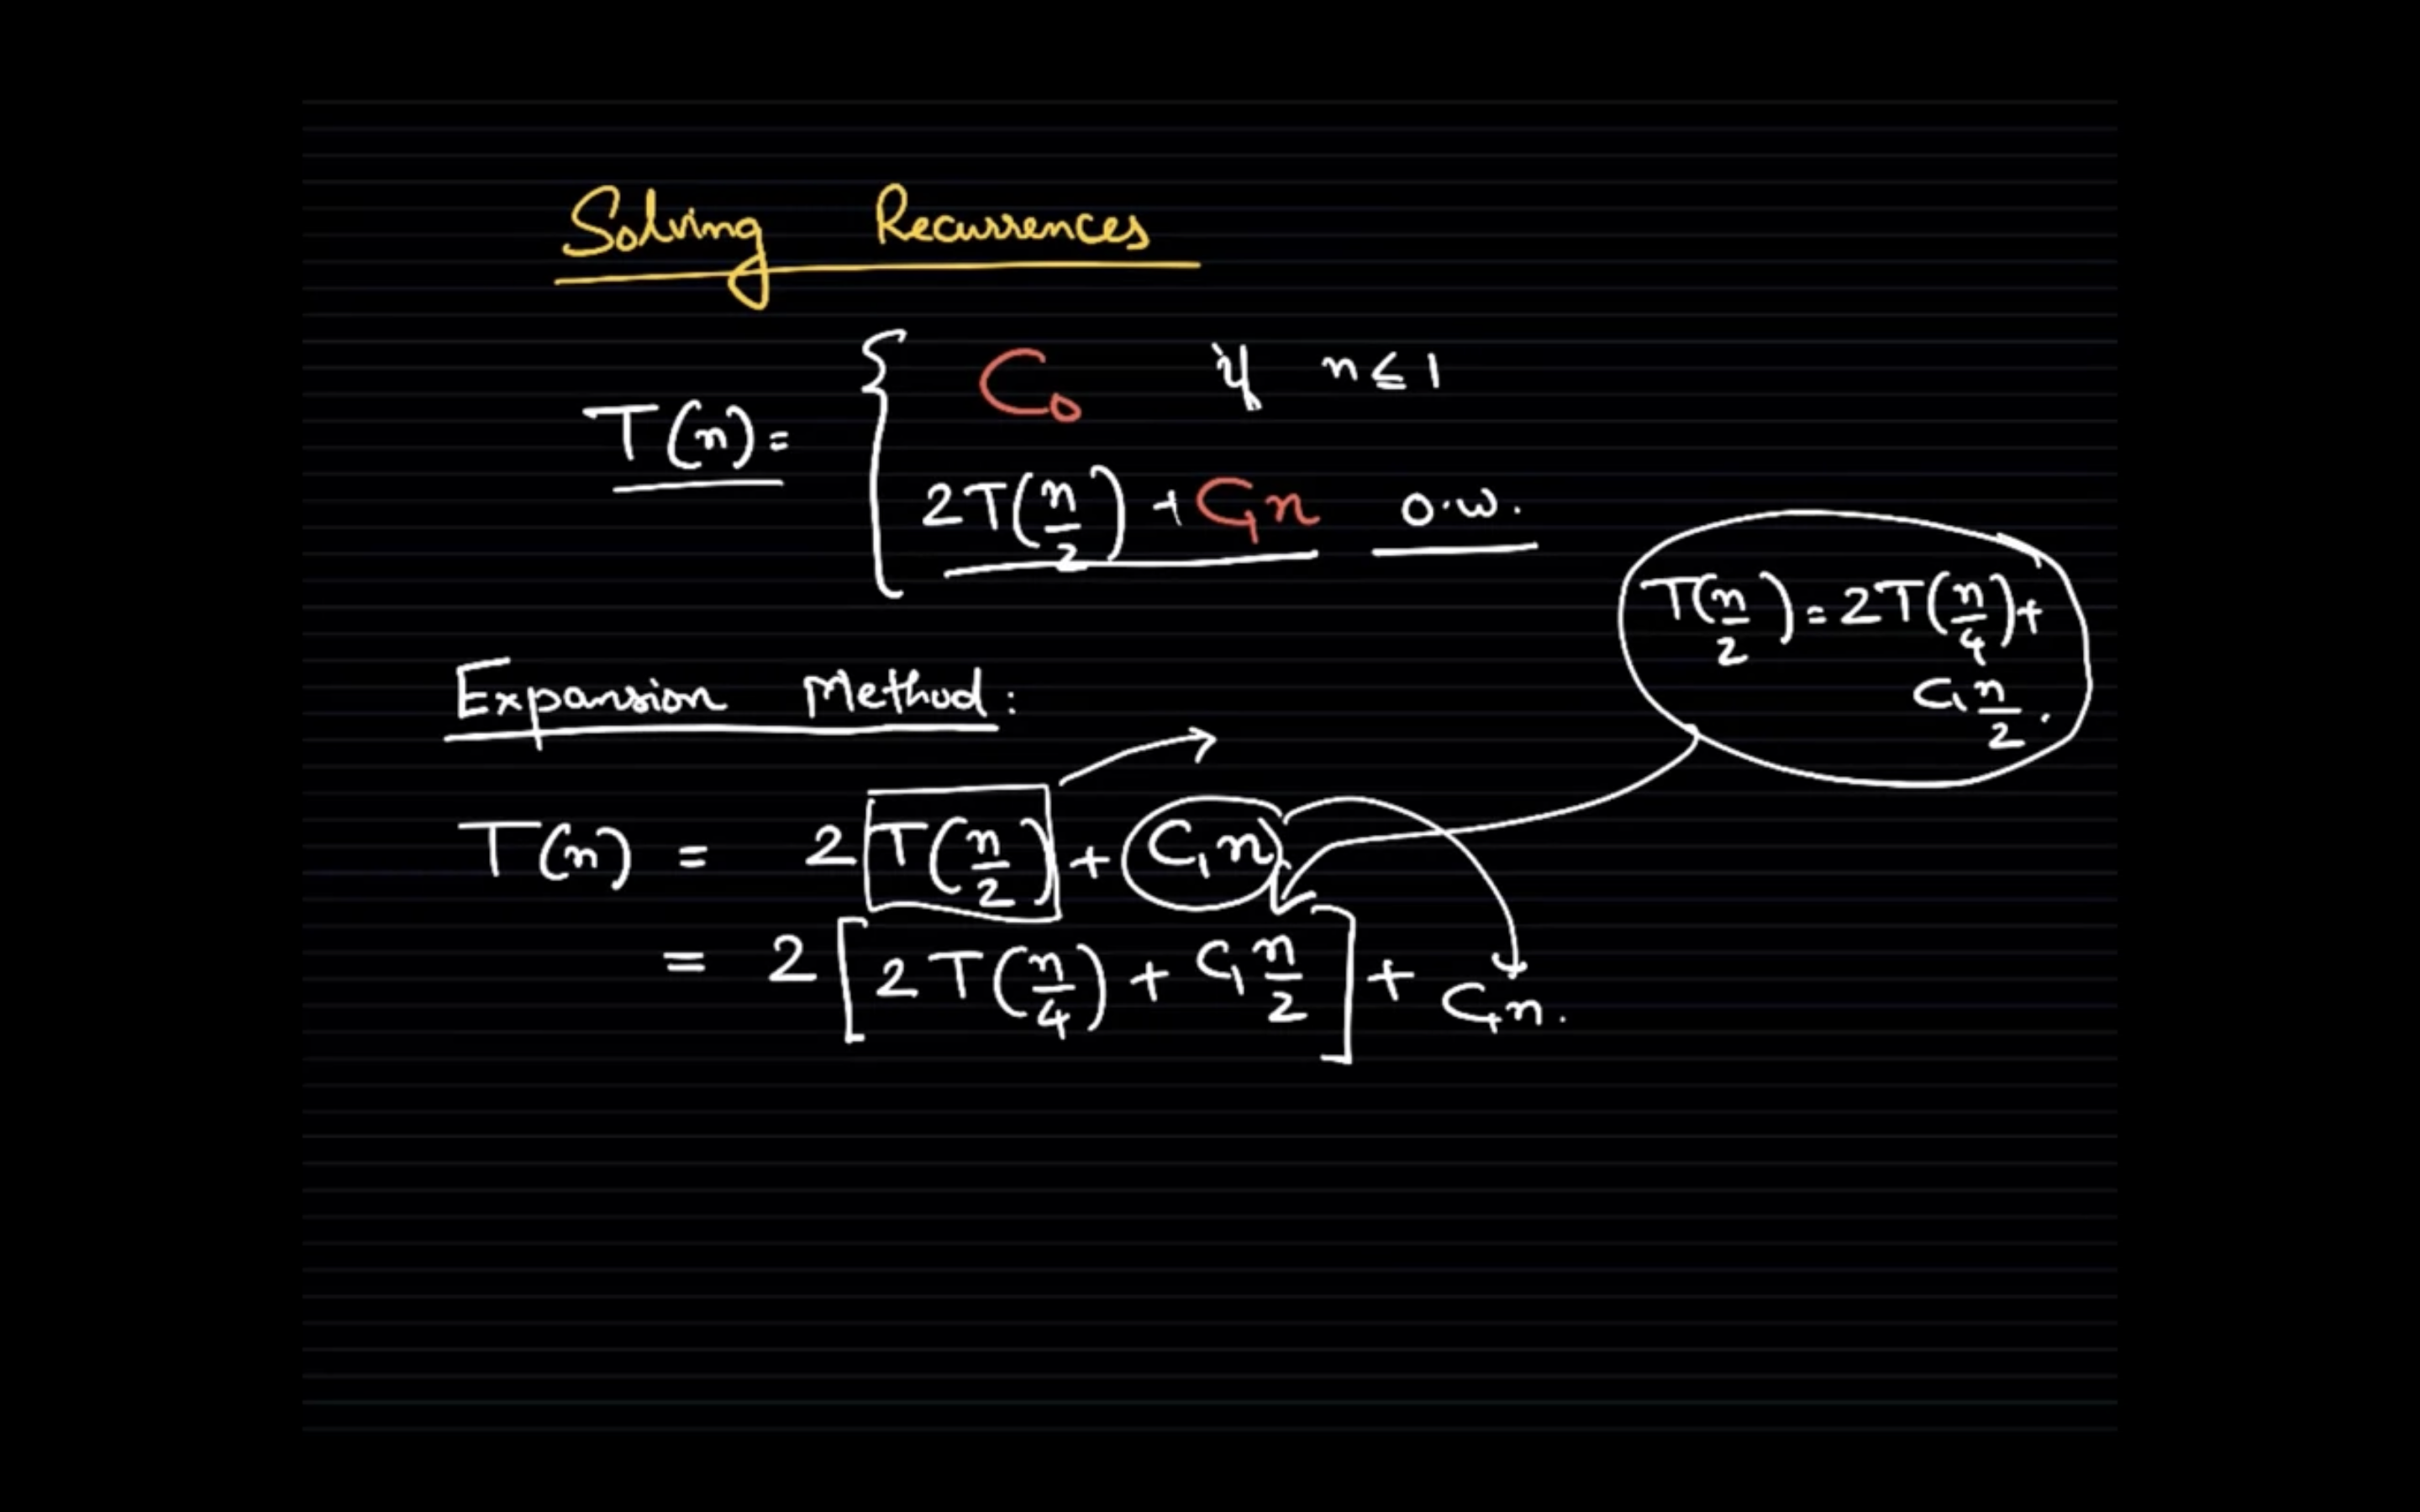 Solving Recurrences
T(n) = { C₀ if n ≤ 1
2T(n/2) + C₁n o.w.
T(n/2) = 2T(n/4) +
C₁ n/2.
Expansion Method:
T(n) = 2 T(n/2) + C₁n
= 2 [ 2T(n/4) + C₁ n/2 ] + C₁n.